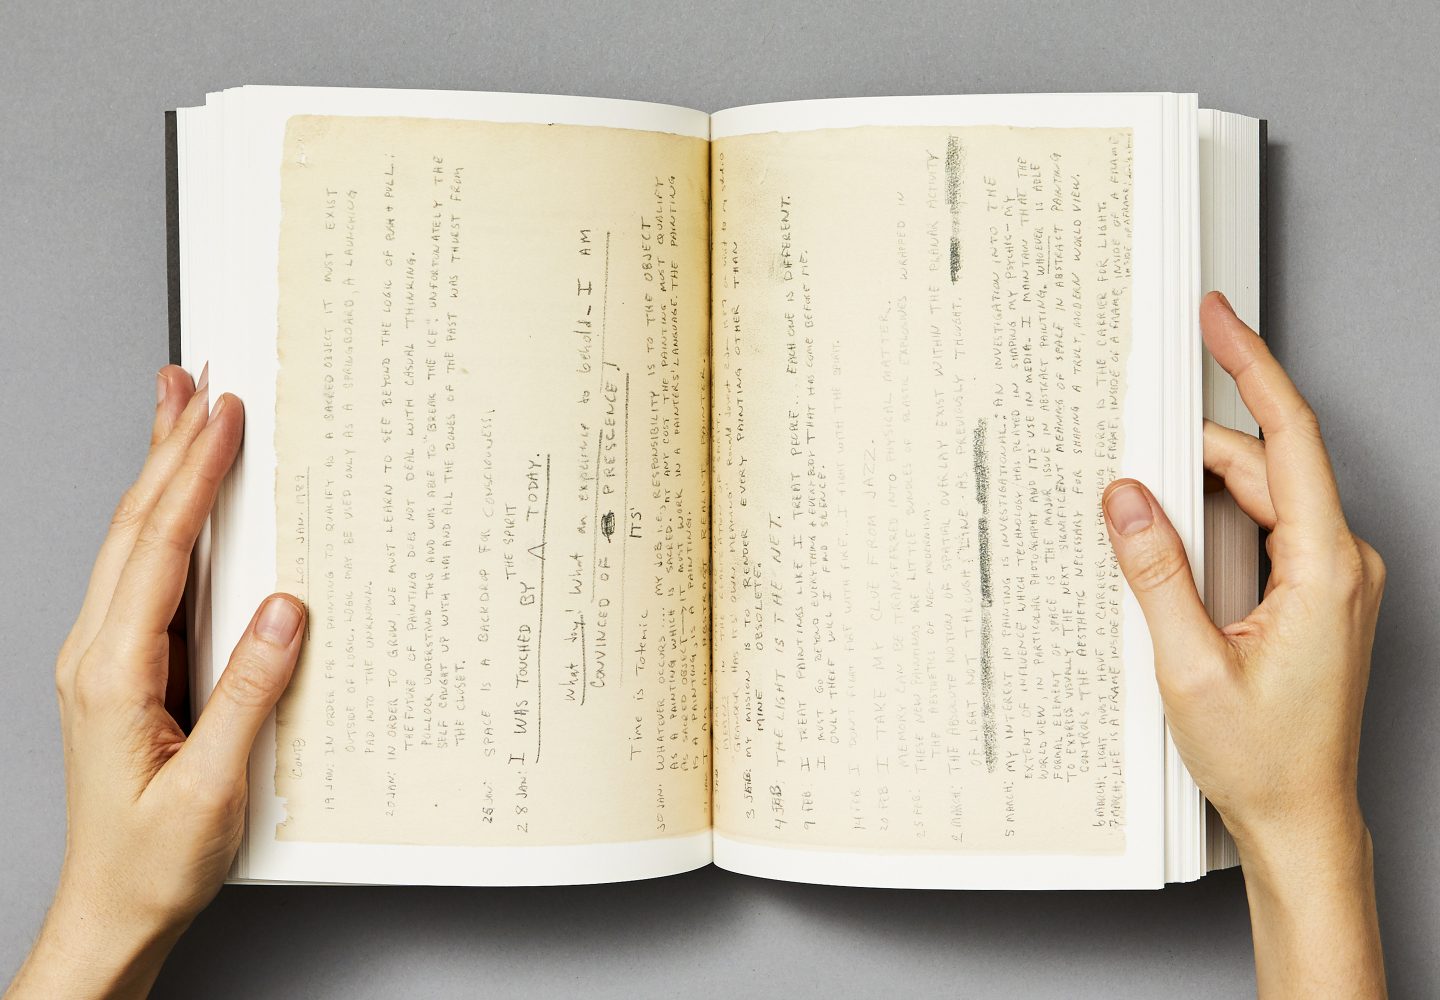 LOG JAN. 1989
(CONT'D
19 JAN: IN ORDER FOR A PAINTING TO QUALIFY AS A SACRED OBJECT IT MUST EXIST
OUTSIDE OF LOGIC. LOGIC MAY BE VIEWED ONLY AS A SPRINGBOARD, A LAUNCHING
PAD INTO THE UNKNOWN.
20 JAN: IN ORDER TO GROW WE MUST LEARN TO SEE BEYOND THE LOGIC OF PUSH + PULL:
THE FUTURE OF PAINTING DOES NOT DEAL WITH CASUAL THINKING.
POLLOCK UNDERSTAND THIS AND WAS ABLE TO "BREAK THE ICE". UNFORTUNATELY THE
SELF CAUGHT UP WITH HIM AND ALL THE BONES OF THE PAST WAS THURST FROM
THE CLOSET.
25 JAN: SPACE IS A BACKDROP FOR CONSCIOUSNESS.
28 JAN: I WAS TOUCHED BY THE SPIRIT TODAY.
What Joy! What an experience to behold - I AM
CONVINCED OF ITS' PRESCENCE!
Time is Totemic
30 JAN: WHATEVER OCCURS.... MY JOB I.E. RESPONSIBILITY IS TO THE OBJECT
AS A PAINTING WHICH IS SACRED. AT ANY COST THE PAINTING MUST QUALIFY
AS SACRED OBJECT → IT MUST WORK IN A PAINTERS' LANGUAGE. THE PAINTING
IS A PAINTING, IS A PAINTING.
I AM AN ABSTRACT REALIST PAINTER.
3 FEB: MY MISSION IS TO RENDER EVERY PAINTING OTHER THAN
MINE OBSOLETE.
4 FEB: THE LIGHT IS THE NET.
9 FEB I TREAT PAINTINGS LIKE I TREAT PEOPLE... EACH ONE IS DIFFERENT.
I MUST GO BEYOND EVERYTHING + EVERYBODY THAT HAS COME BEFORE ME.
ONLY THERE WILL I FIND SILENCE.
14 FEB I DON'T FIGHT FIRE WITH FIRE, I FIGHT WITH THE SPIRIT.
20 FEB I TAKE MY CLUE FROM JAZZ.
MEMORY CAN BE TRANSFERRED INTO PHYSICAL MATTER.
25 FEB: THESE NEW PAINTINGS ARE LITTLE BUNDLES OF PLASTIC EXPLOSIVES WRAPPED IN
THE AESTHETIC OF NEO-MODERNISM
2 MARCH: THE ABSOLUTE NOTION OF SPATIAL OVERLAY EXIST WITHIN THE PLANAR ACTIVITY
OF LIGHT NOT THROUGH "LINE" AS PREVIOUSLY THOUGHT.
5 MARCH: MY INTEREST IN PAINTING IS INVESTIGATIONAL.. AN INVESTIGATION INTO THE
EXTENT OF INFLUENCE WHICH TECHNOLOGY HAS PLAYED IN SHAPING MY PSYCHIC - MY
WORLD VIEW IN PARTICULAR PHOTOGRAPHY AND ITS USE IN MEDIA. I MAINTAIN THAT THE
FORMAL ELEMENT OF SPACE IS THE MAJOR ISSUE IN ABSTRACT PAINTING. WHOEVER IS ABLE
TO EXPRESS VISUALLY THE NEXT SIGNIFICENT MEANING OF SPACE IN ABSTRACT PAINTING
CONTROLS THE AESTHETIC NECESSARY FOR SHAPING A TRULY, MODERN WORLD VIEW.
6 MARCH: LIGHT MUST HAVE A CARRIER. IN PAINTING FORM IS THE CARRIER FOR LIGHT.
7 MARCH: LIFE IS A FRAME INSIDE OF A FRAME INSIDE OF A FRAME, INSIDE OF A FRAME, INSIDE OF A FRAME,
INSIDE OF A FRAME,